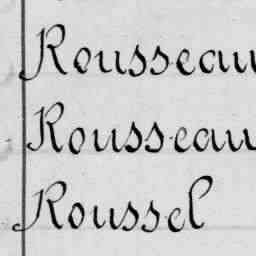 Rousseau
Rousseau
Roussel